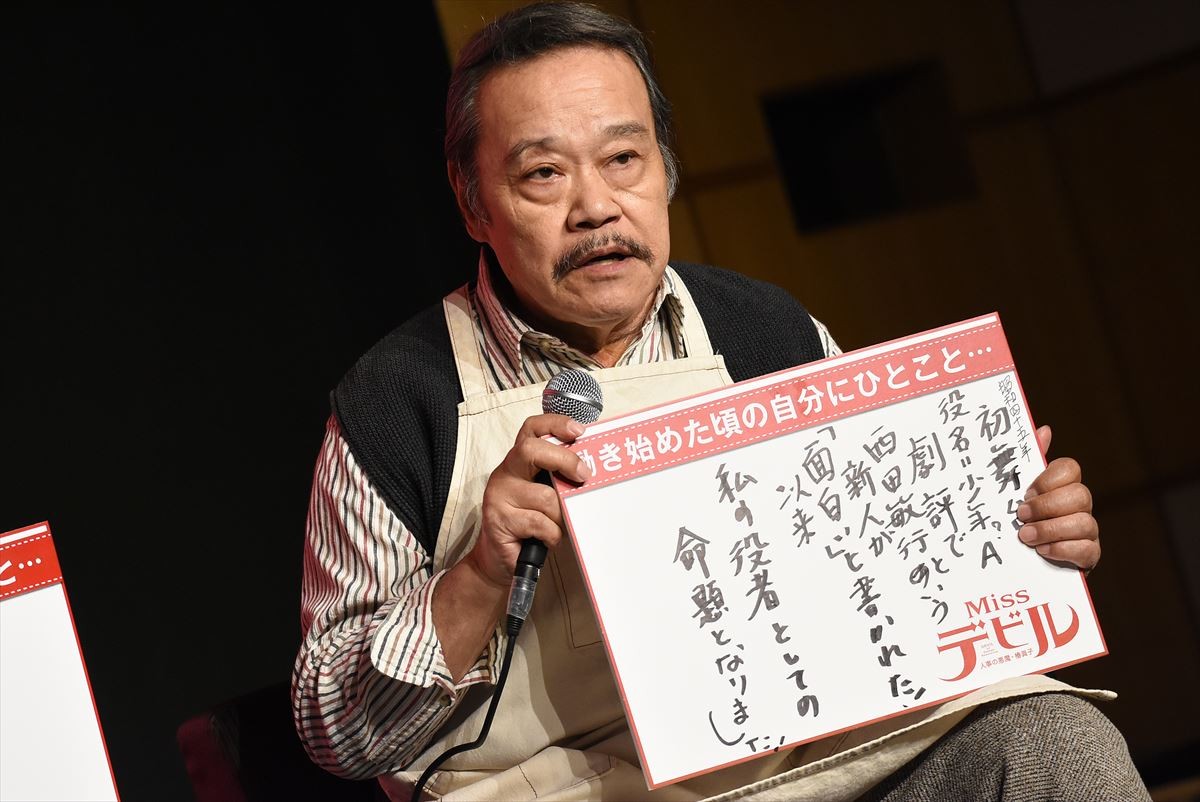 働き始めた頃の自分にひとこと…
昭和四十五年
初舞台
役名=少年A
劇評で
西田敏行という
新人が
「面白い」と書かれた!
以来
私の役者としての
命題となりました!
Miss
デビル
人事の悪魔・椿眞子
と…